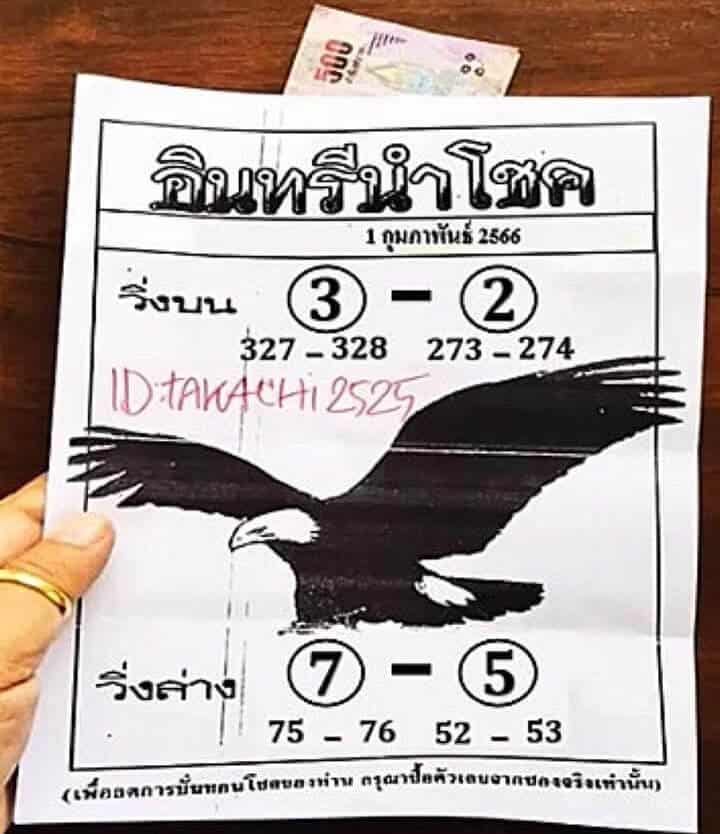 500
อินทรีนำโชค
1 กุมภาพันธ์ 2566
วิ่งบน 3 - 2
327 - 328 273 - 274
ID:TAKACHi2525
วิ่งล่าง 7 - 5
75 - 76 52 - 53
(เพื่อลดการบั่นทอนโชคของท่าน กรุณาซื้อตัวเลขจากซองจริงเท่านั้น)